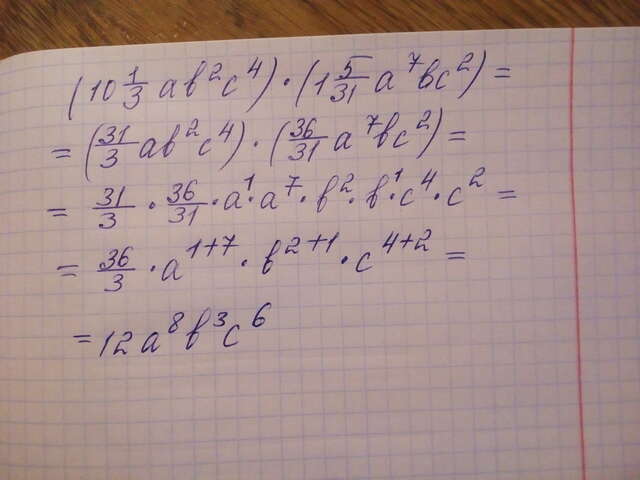 (10 1/3 ab²c⁴)·(1 5/31 a⁷bc²)=
=(31/3 ab²c⁴)·(36/31 a⁷bc²)=
= 31/3 · 36/31 · a¹·a⁷·b²·b¹·c⁴·c² =
= 36/3 · a¹⁺⁷ · b²⁺¹ · c⁴⁺² =
= 12a⁸b³c⁶